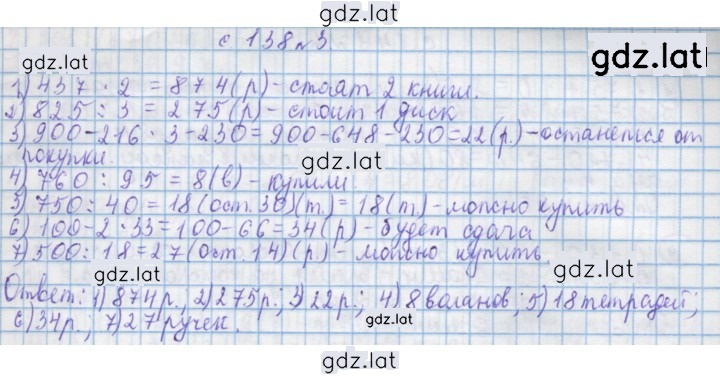 gdz.lat
с 138 № 3
gdz.lat
gdz.lat
1) 437 · 2 = 874 (р) - стоят 2 книги.
2) 825 : 3 = 275 (р) - стоит 1 диск
3) 900 - 216 · 3 - 230 = 900 - 648 - 230 = 22 (р.) - останется от
покупки. gdz.lat
4) 760 : 95 = 8 (в) - купили.
5) 750 : 40 = 18 (ост. 30) (т.) = 18 (т.) - можно купить
6) 100 - 2 · 33 = 100 - 66 = 34 (р) - будет сдача
7) 500 : 18 = 27 (ост. 14) (р.) - можно купить.
gdz.lat gdz.lat
Ответ: 1) 874 р., 2) 275 р.; 3) 22 р.; 4) 8 воланов; 5) 18 тетрадей;
6) 34 р.; 7) 27 ручек.
gdz.lat
gdz.lat